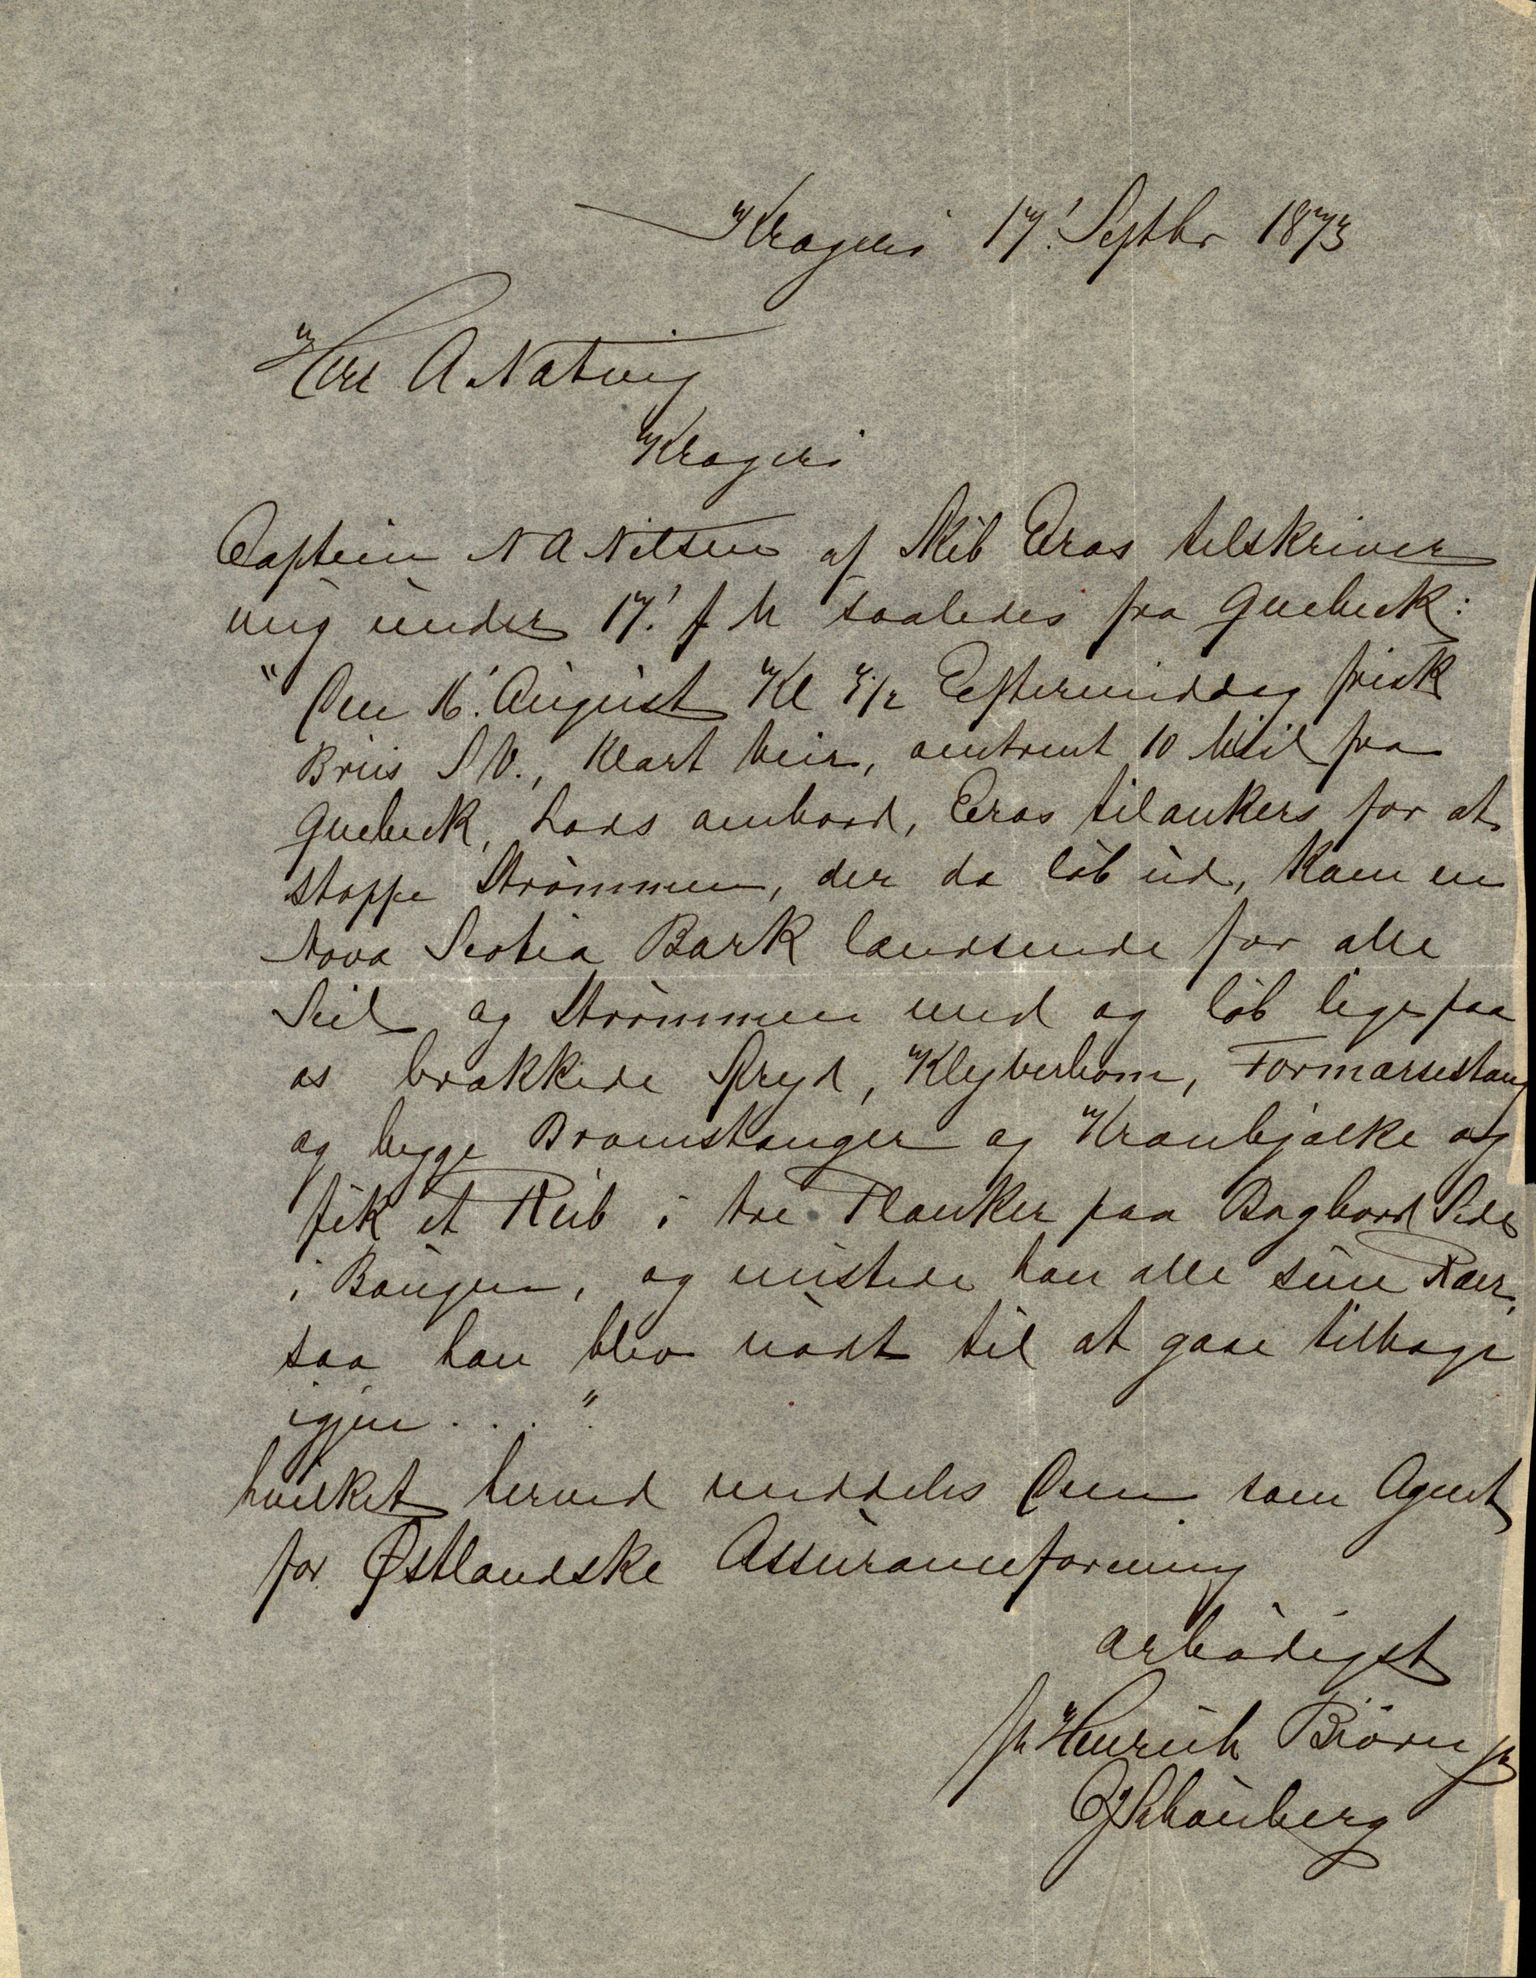 Kragerø 17' Septbr 1873
Herr A. Natvig
Kragerø
Captein N A Nilsen af Skib Eros tilskriver
mig under 17' f M saaledes fra Quebeck:
"Den 16' August Kl 5 1/2 Eftermiddag frisk
Briis S V., klart Veir, omtrent 10 Miil fra
Quebeck, Lods ombord, Eros tilankers for at
stoppe Strømmen, der da løb ud, kom en
Nova Scotia Bark lændsende for alle
Seil og Strømmen med og løb lige paa
os brækkede Spryd, Klyverbom, Formærsestang
og begge Bramstænger og Kranbjælke og
fik et Reib i tre Planker paa Bagbord Side
i Bougen, og mistede han alle sine Ræer,
saa han blev nødt til at gaae tilbage
igjen . . . ."
hvilket herved meddeles Dem som Agent
for Østlandske Assuranceforening
ærbødigst
pr Henrich Biørn jr
Schønberg